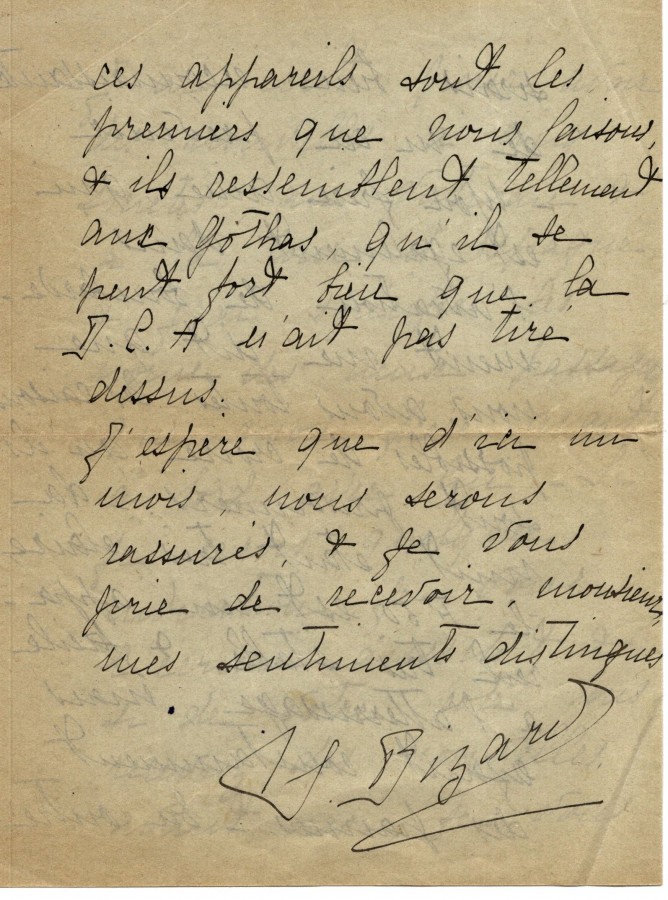 ces appareils sont les
premiers que nous faisons,
& ils ressemblent tellement
aux Gothas, qu'il se
peut fort bien que la
D.C.A n'ait pas tiré
dessus.
J'espère que d'ici un
mois, nous serons
rassurés, & je vous
prie de recevoir, monsieur,
mes sentiments distingués
Bizard